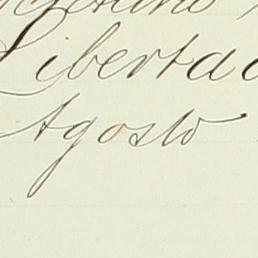 Liberta
Agosto